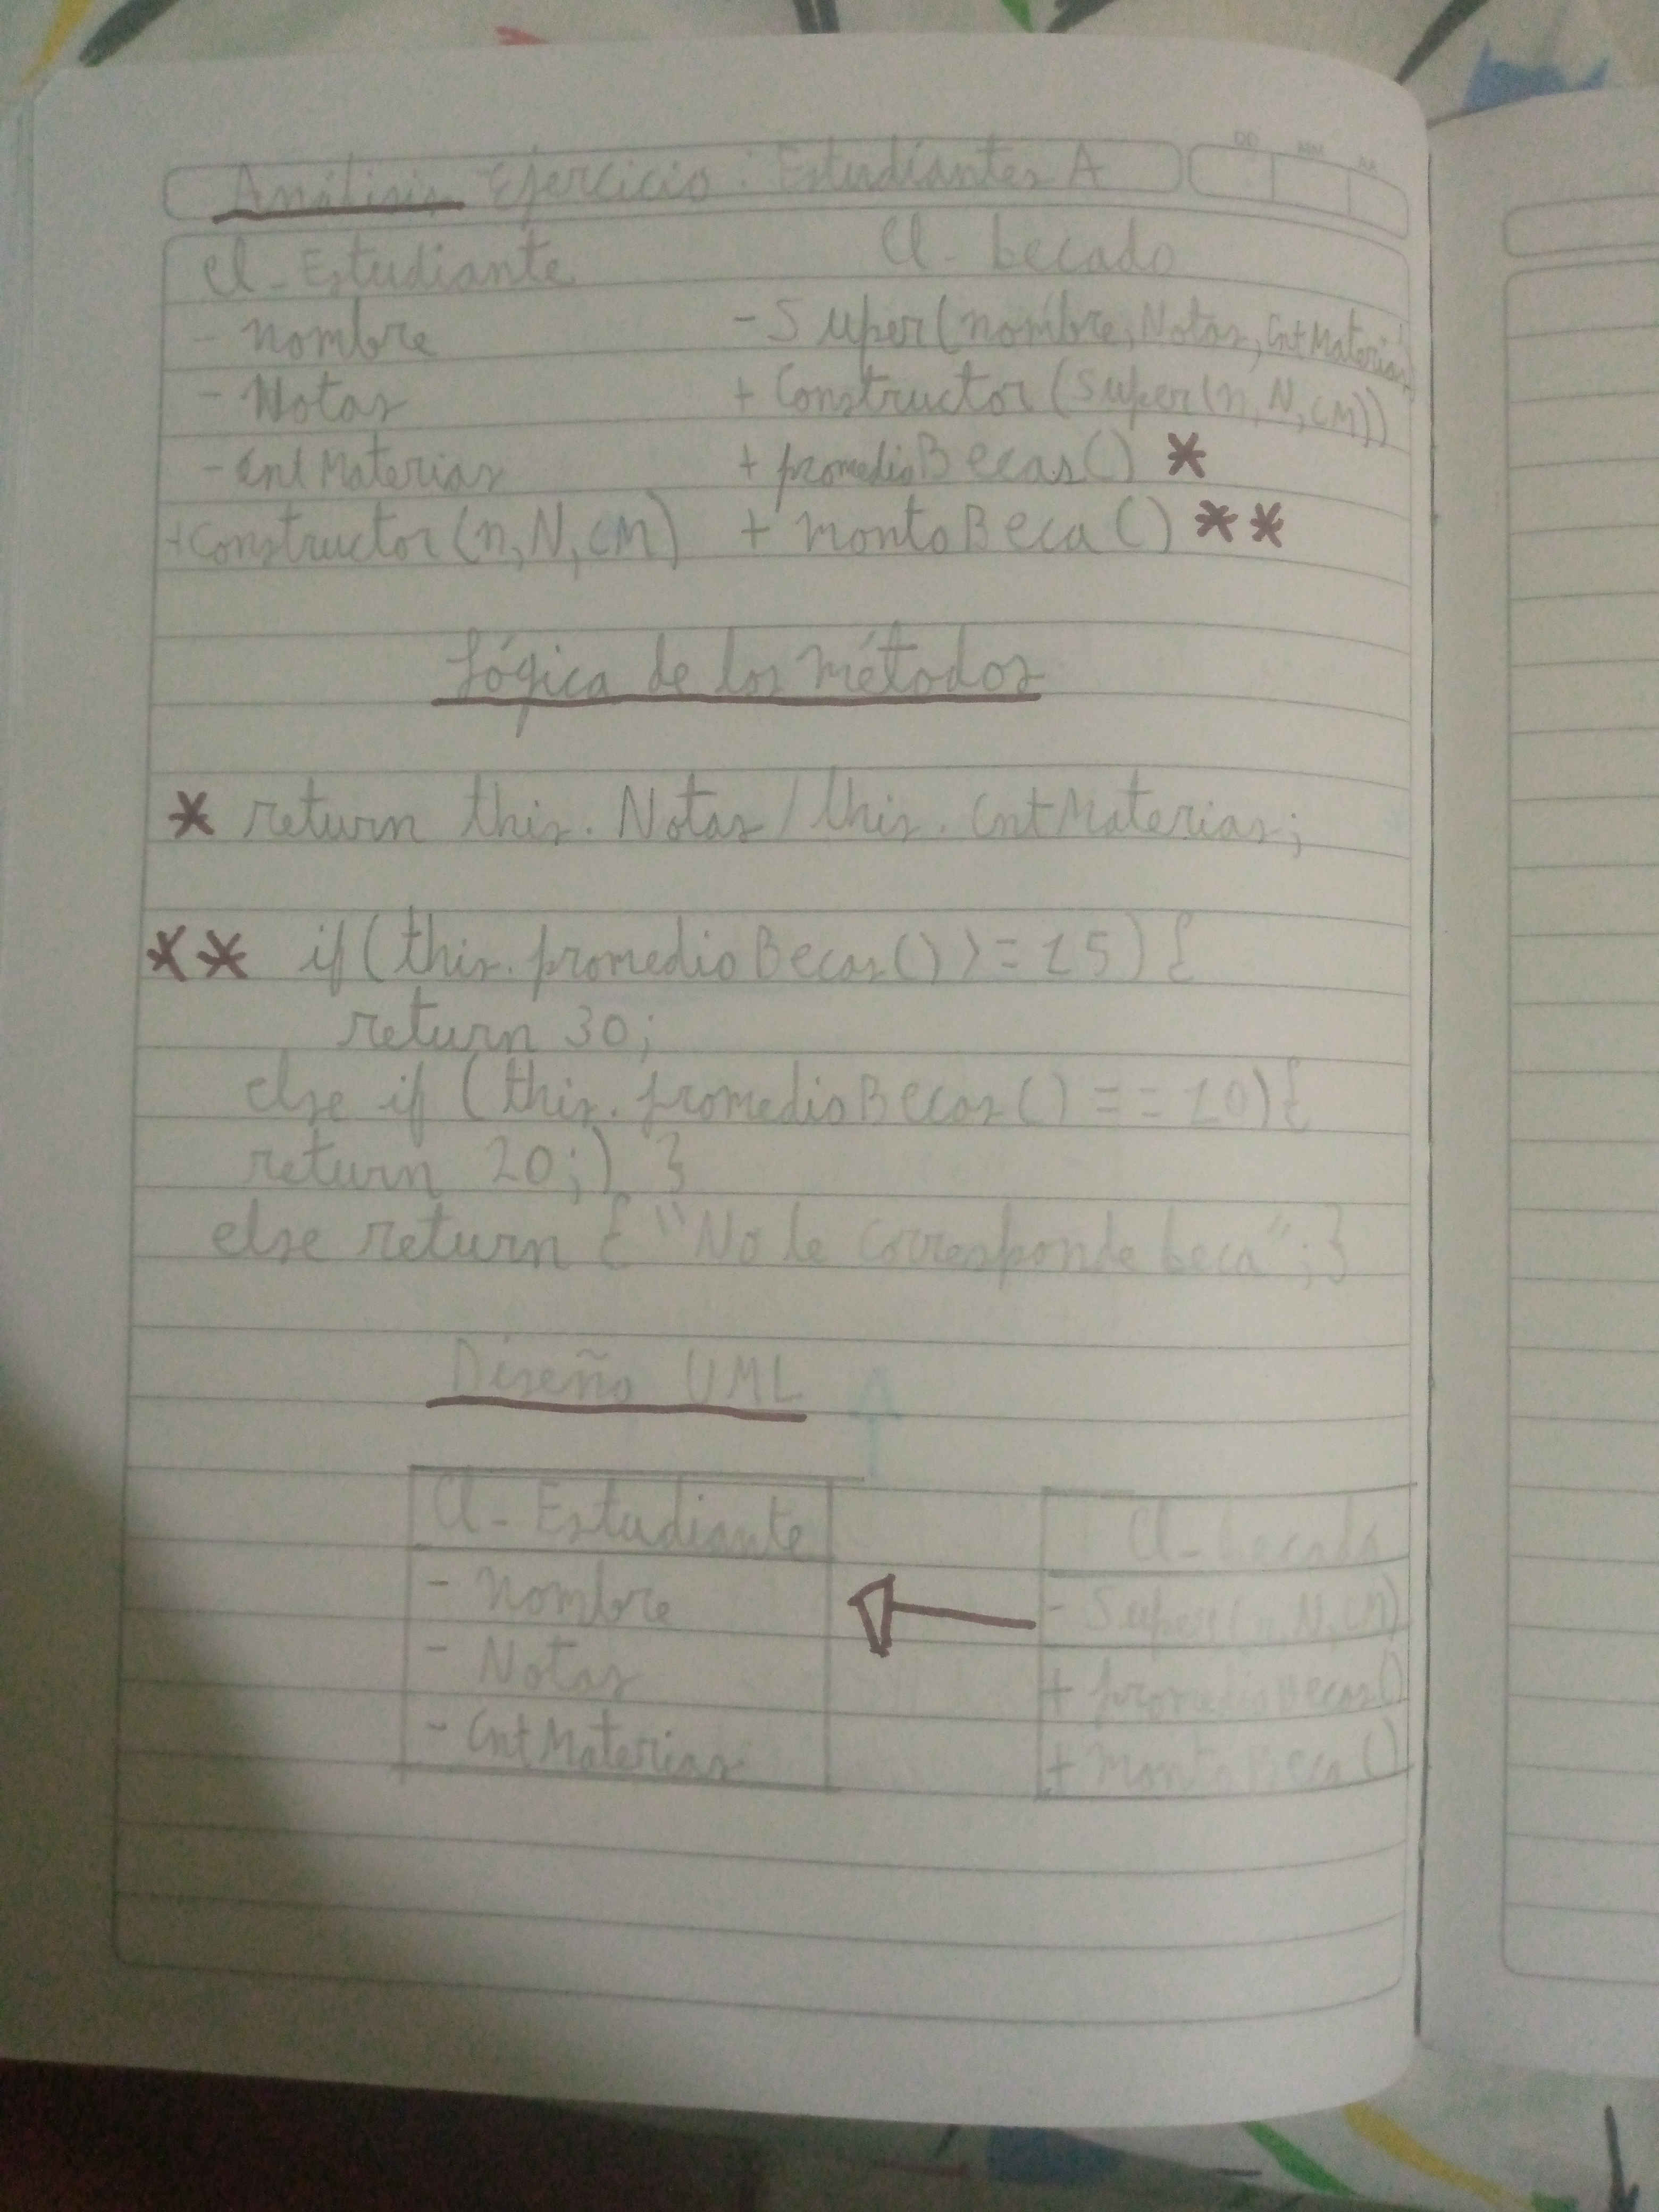 Análisis Ejercicio: Estudiantes A
DD MM AA
Cl-Estudiante
- nombre
- Notas
- CntMaterias
+Constructor(n,N,cM)
Cl-becado
- Super(nombre, Notas, CntMaterias)
+ Constructor(super(n,N,cM))
+ promedioBecas() *
+ montoBeca() **
Lógica de los métodos
* return this.Notas/this.CntMaterias;
** if(this.promedioBecas()>=15){
return 30;
else if (this.promedioBecas()==10){
return 20;) }
else return {"No le corresponde beca";}
Diseño UML
Cl-Estudiante
- nombre
- Notas
- CntMaterias
Cl-becado
- Super(n,N,cM)
+ promedioBecas()
+ montoBeca()